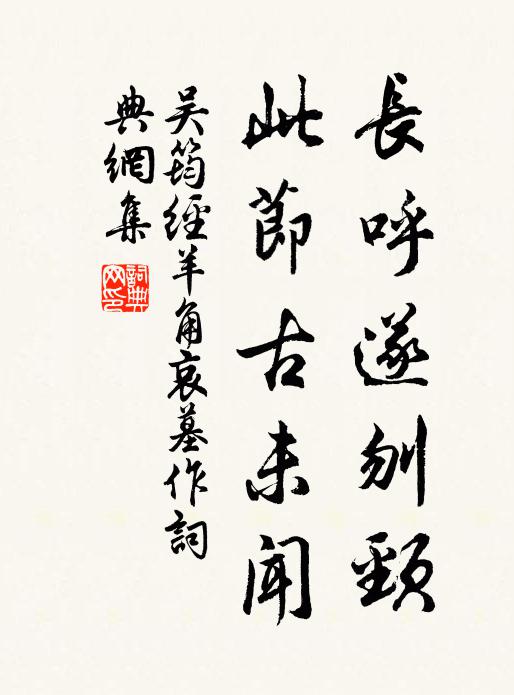 長呼遂刎頸
此節古未聞
吴筠經羊角哀墓作詞
典網集
詞典
网印